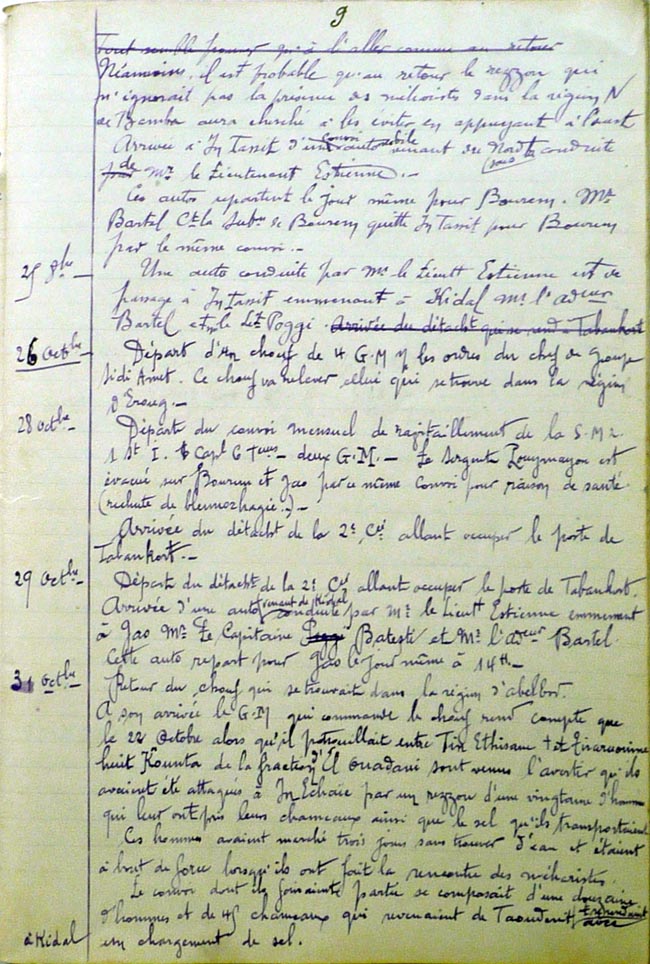 9
Tout semble prouver qu'à l'aller comme au retour
Néanmoins, il est probable qu'au retour le rezzou qui
n'ignorait pas la présence des méharistes dans la région N
de Bamba aura cherché à les éviter en appuyant à l'ouest
Arrivée à In Tassit d'un convoi automobile venant du Nord sous la conduite
de Mr le Lieutenant Estienne.-
Ces autos repartent le jour même pour Bourem. Mr
Bastel Ct la Subon de Bourem quitte In Tassit pour Bourem
par le même convoi.-
25 8bre
Une auto conduite par Mr le Lieutt Estienne est de
passage à In Tassit emmenant à Kidal Mr l'adeur
Bastel et le Lt Poggi. Arrivée du détacht qui se rend à Tabankort
26 Octbre
Départ d'un chouf de 4 G.M sous les ordres du chef de groupe
Sidi Amet. Ce chouf va relever celui qui se trouve dans la région
d'Eroug.-
28 octbre
Départ du convoi mensuel de ravitaillement de la S.M 2.
1 St I. 1 Capl 6 Teurs - deux G.M.- Le Sergent est
évacué sur Bourem et Gao par ce même convoi pour raison de santé
(rechute de blennorhagie.)-
Arrivée du détacht de la 2e Cie allant occuper le poste de
Tabankort.-
29 Octbre
Départ du détacht de la 2e Cie allant occuper le poste de Tabankort.
Arrivée d'une auto venant de Kidal conduite par Mr le Lieutt Estienne emmenant
à Gao Mr Le Capitaine Poggi Batesti et Mr l'adeur Bastel.
Cette auto repart pour Gao le jour même à 14h-
31 octbre
Retour du chouf qui se trouvait dans la région d'abelbor.
A son arrivée le G.M qui commande le chouf rend compte que
le 22 Octobre alors qu'il patrouillait entre Tin Ethisane et
huit Kounta de la fraction d'El Ouadani sont venus l'avertir qu'ils
avaient été attaqués à In Echaïe par un rezzou d'une vingtaine d'hommes
qui leur ont pris leurs chameaux ainsi que le sel qu'ils transportaient
Ces hommes avaient marché trois jours sans trouver d'eau et étaient
à bout de force lorsqu'ils ont fait la rencontre des méharistes.
Le convoi dont ils faisaient partie se composait d'une douzaine
d'hommes et de 45 chameaux qui revenaient de Taoudenit se rendant
à Kidal avec
un chargement de sel.